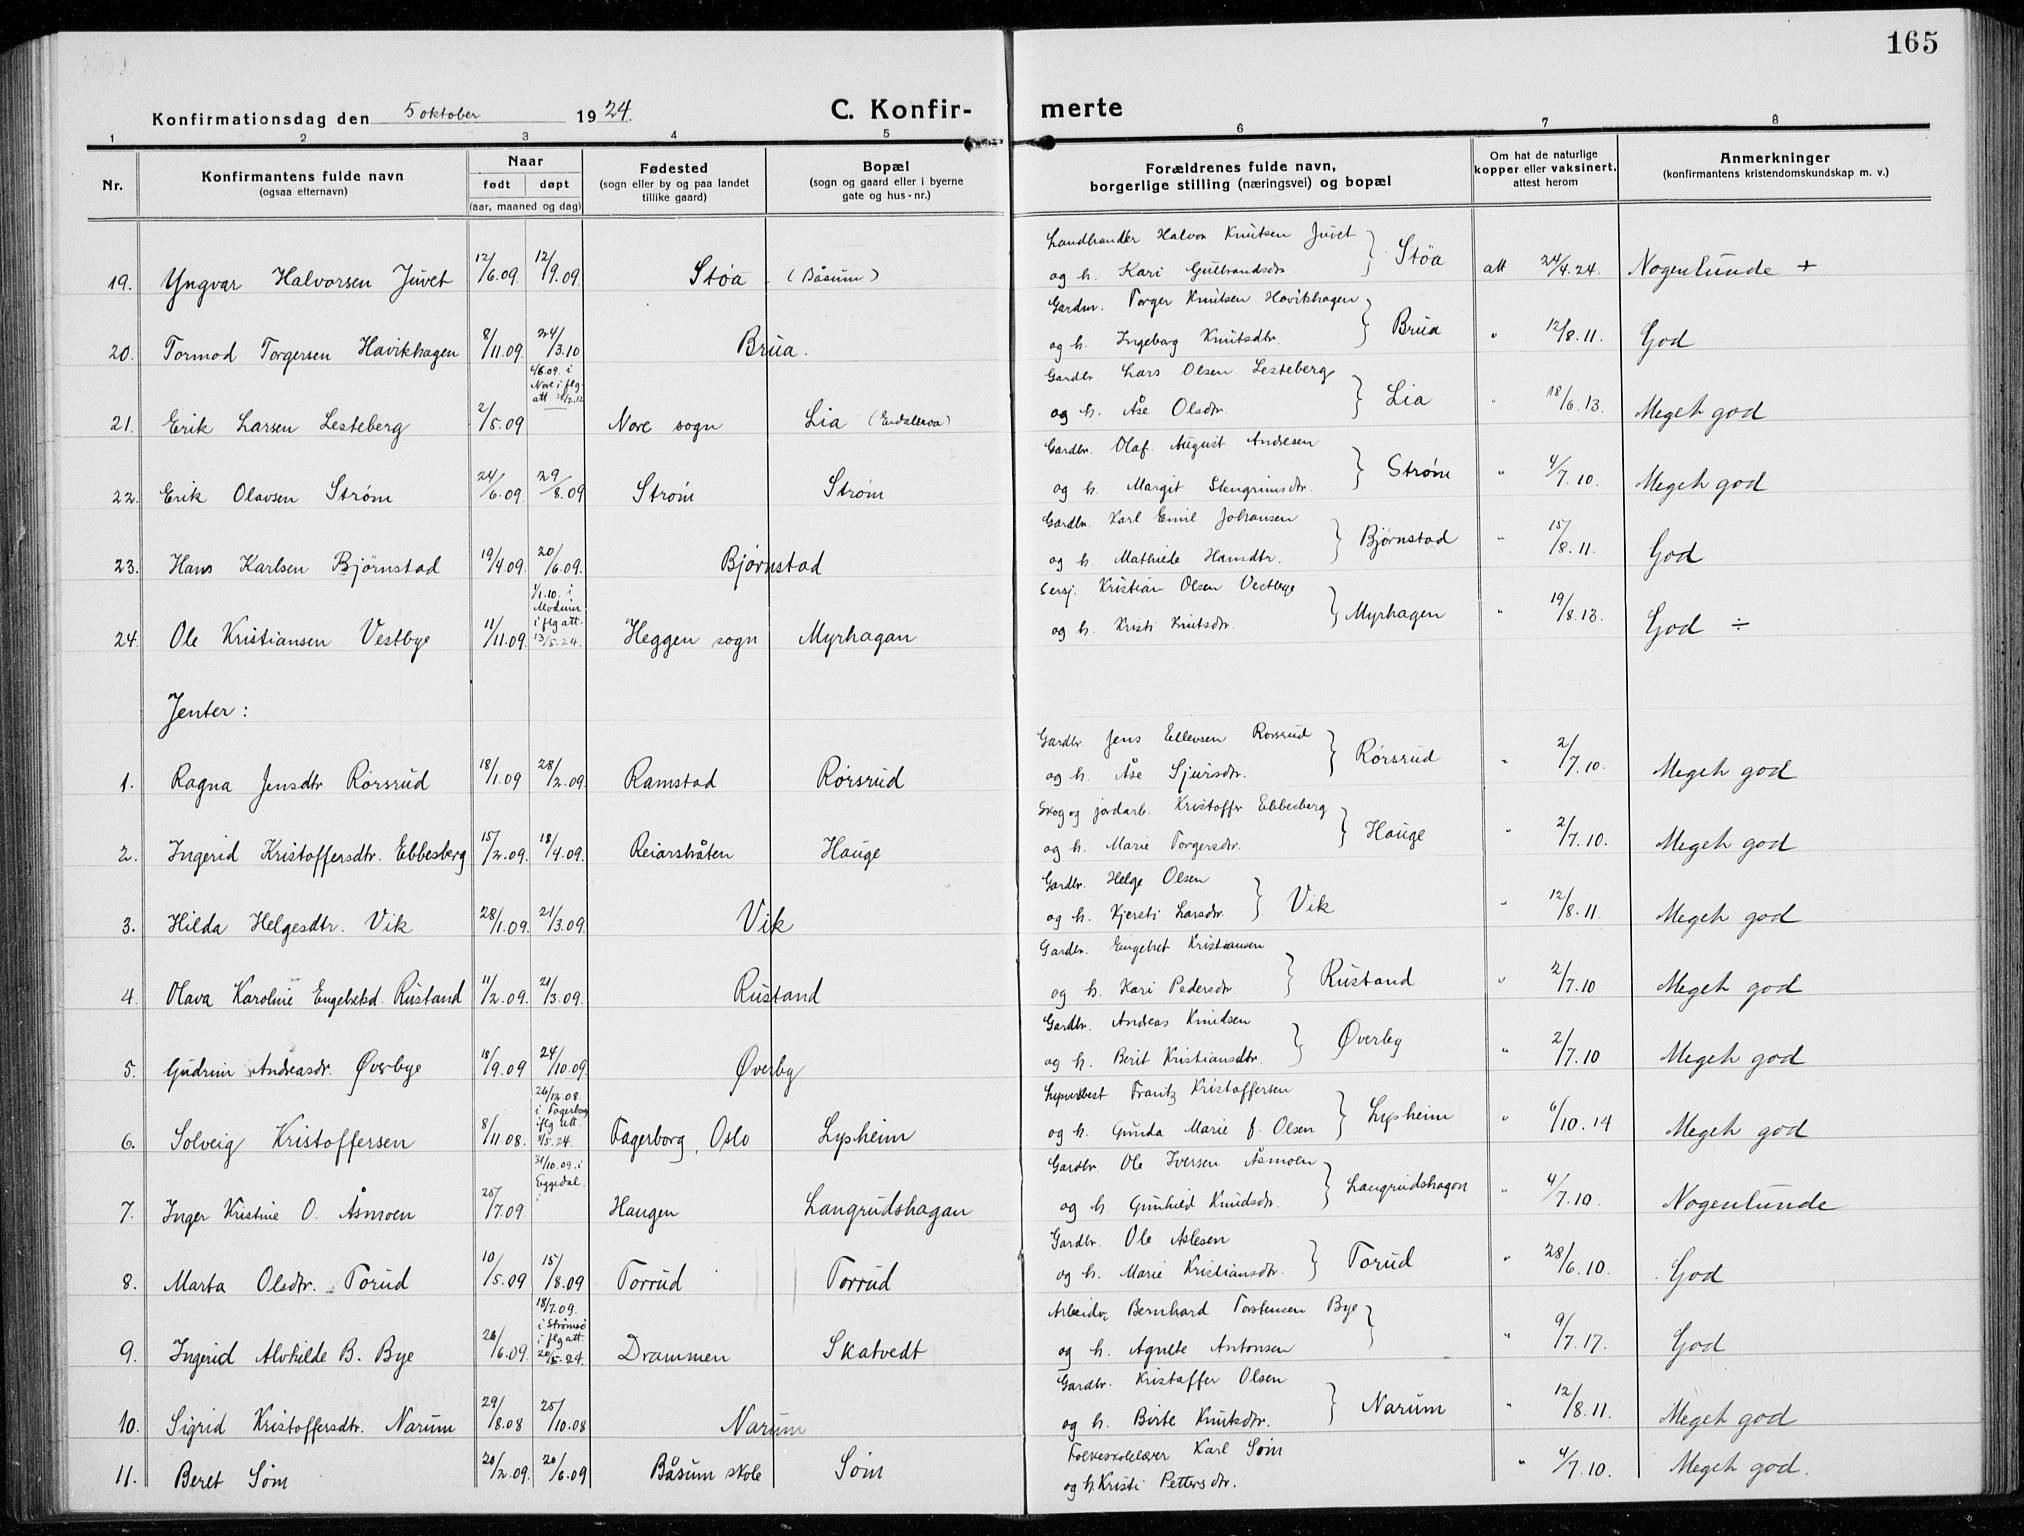 165
Konfirmationsdag den 5 oktober 1924.
C. Konfirmerte
1 2 3 4 5 6 7 8
Nr.
Konfirmantens fulde navn
(ogsaa efternavn)
Naar
født døpt
(aar, maaned og dag)
Fødested
(sogn eller by og paa landet
tillike gaard)
Bopæl
(sogn og gaard eller i byerne
gate og hus-nr.)
Forældrenes fulde navn,
borgerlige stilling (næringsvei) og bopæl
Om hat de naturlige
kopper eller vaksinert,
attest herom
Anmerkninger
(konfirmantens kristendomskundskap m. v.)
Landhandler Halvor Knutsen Juvet
19. Yngvar Halvorsen Juvet 12/6.09. 12/9.09. Støa (Båsum) og h. Kari Gulbrandsdtr. } Støa att 24/4.24. Nogenlunde +
Gardbr. Torger Knutsen Havikhagen
20. Tormod Torgersen Havikhagen 8/11.09. 24/3.10 Brua. og h. Ingeborg Knutsdtr. } Brua " 12/8.11. God
4/6.09. i
Nore iflg.
att.
Gardbr. Lars Olsen Lesteberg
21. Erik Larsen Lesteberg 2/5.09 Nore sogn Lia og h. Åse Olsdtr. } Lia " 18/6.13. Meget god
Gardbr. Olaf August Andresen
22. Erik Olavsen Strøm 24/6.09. 29/8.09 Strøm Strøm og h. Margit Stengrimsdtr. } Strøm " 4/7.10. Meget god
Gardbr. Karl Emil Johansen
23. Hans Karlsen Bjørnstad 19/4.09. 20/6.09. Bjørnstad og h. Mathilde Hansdtr. } Bjørnstad " 15/8.11. God
1/1.10. i
Modum
iflg att.
13/5.24.
Sersj. Kristian Olsen Vestbye
24. Ole Kristiansen Vestbye 11/11.09. Heggen sogn Myrhagan og h. Kristi Knutsdtr. } Myrhagen " 19/8.13. God ÷
Jenter:
Gardbr. Jens Ellevsen Rørsrud
1. Ragna Jensdtr Rørsrud 18/1.09 28/2.09. Ramstad Rørsrud og h. Åse Sjursdtr. } Rørsrud " 2/7.10. Meget god
Skog og jordarb. Kristoffer Ebbesberg
2. Ingerid Kristoffersdtr. Ebbesberg 15/2.09. 18/4.09. Reiarsbråten Hauge og h. Marie Torgersdtr. } Hauge " 2/7.10. Meget god
Gardbr. Helge Olsen
3. Hilda Helgesdtr. Vik 28/1.09. 21/3.09. Vik og h. Kjersti Larsdtr. } Vik " 12/8.11. Meget god
Gardbr. Engebret Kristiansen
4. Olava Karoline Engebretsd. Rustand 11/2.09. 21/3.09. Rustand og h. Kari Pedersdtr. } Rustand " 2/7.10 Meget god
Gardbr. Andreas Knudsen
5. Gudrun Andreasdr. Øverbye 18/9.09 24/10.09. Øverby og h. Berit Kristiansdtr. } Øverby " 2/7.10 Meget god
26/12.08.
i Fagerborg
iflg att.
4/5.24.
Frantz Kristoffersen
6. Solveig Kristoffersen 8/11.08. Fagerborg, Oslo Lysheim og h. Gunda Marie f. Olsen } Lysheim " 6/10.14 Meget god
31/10.09. i
Eggedal.
Gardbr. Ole Iversen Åsmoen
7. Inger Kristine O. Åsmoen 25/7.09 Haugen Langrudshagan og h. Gunhild Knudsdtr. } Langrudshagan " 4/7.10. Nogenlunde
Gardbr. Ole Aslesen
8. Marta Olsdtr. Torud 10/5.09 15/8.09 Torrud Torrud og h. Marie Kristiansdtr. } Torud " 28/6.10. God
18/7.09.
i Strømsø
i flg att.
20/5.24.
Arbeider Bernhard Torstensen Bye
9. Ingerid Alvhilde B. Bye 26/6.09. Drammen Skatvedt og h. Agnete Antonsen } " 9/7.17. God
Gardbr. Kristoffer Olsen
10. Sigrid Kristoffersdtr. Narum 29/8.08 25/10.08 Narum og h. Birte Knutsdtr. } Narum " 12/8.11. Meget god
Folkeskolelærer Karl Søm
11. Beret Søm 20/2.09. 20/6.09 Båsum skole Søm og h. Kristi Pettersdtr. " 4/7.10. Meget god.